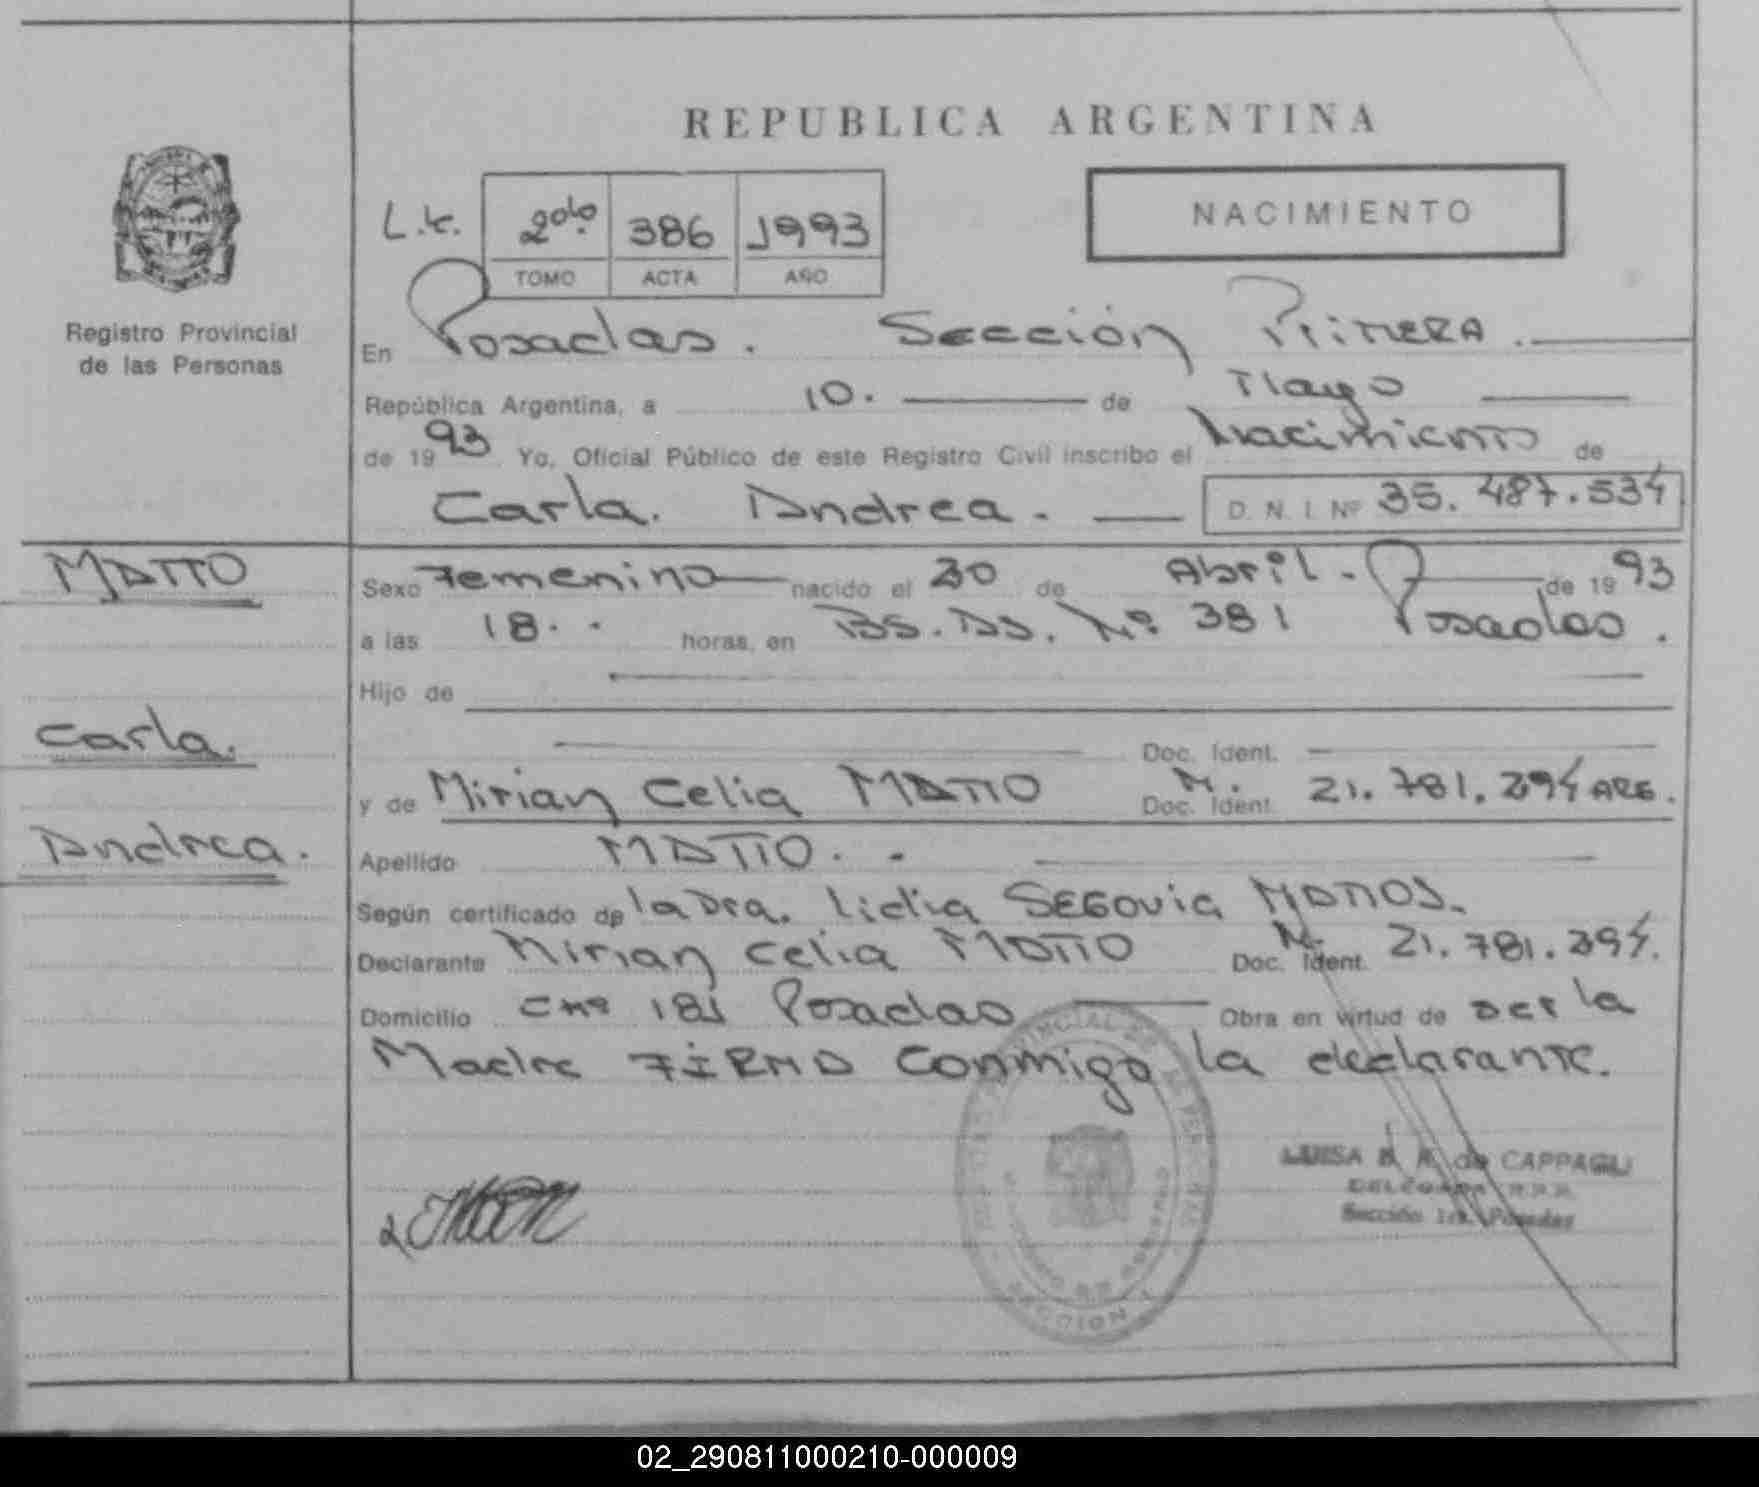 REPUBLICA ARGENTINA
NACIMIENTO
L.c. 2do. 386 1993
TOMO ACTA AÑO
Registro Provincial
de las Personas
En Posadas. Sección Primera.
República Argentina, a 10. de Mayo
de 1993 Yo, Oficial Público de este Registro Civil inscribo el Nacimiento de
Carla. Andrea. D. N. I. Nº 35.487.534
MATTO
Sexo Femenino nacido el 30 de Abril. de 1993
a las 18. horas, en Bs. As. Nº 381 Posadas.
Hijo de
Carla.
Doc. Ident.
y de Mirian Celia MATTO Doc. Ident. M. 21.781.394 ARG.
Andrea.
Apellido MATTO.
Según certificado de la Dra. Lidia SEGOVIA
Declarante Mirian Celia MATTO Doc. Ident. M. 21.781.394.
Domicilio 181 Posadas Obra en virtud de ser la
Madre FIRMA conmigo la declarante.
LUISA de CAPPAGLI
Sección 1ra. Posadas
SECCION 1
02_290811000210-000009